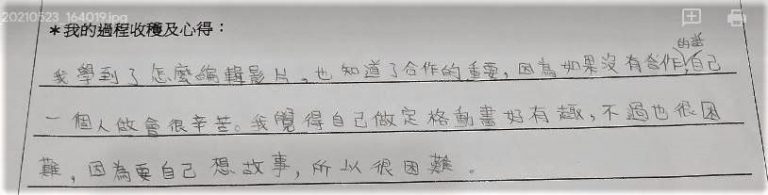 20210523_164019.jpg
＊我的過程收穫及心得：
我學到了怎麼編輯影片，也知道了合作的重要，因為如果沒有合作的話，自己
一個人做會很辛苦。我覺得自己做定格動畫好有趣，不過也很困
難，因為要自己想故事，所以很困難。